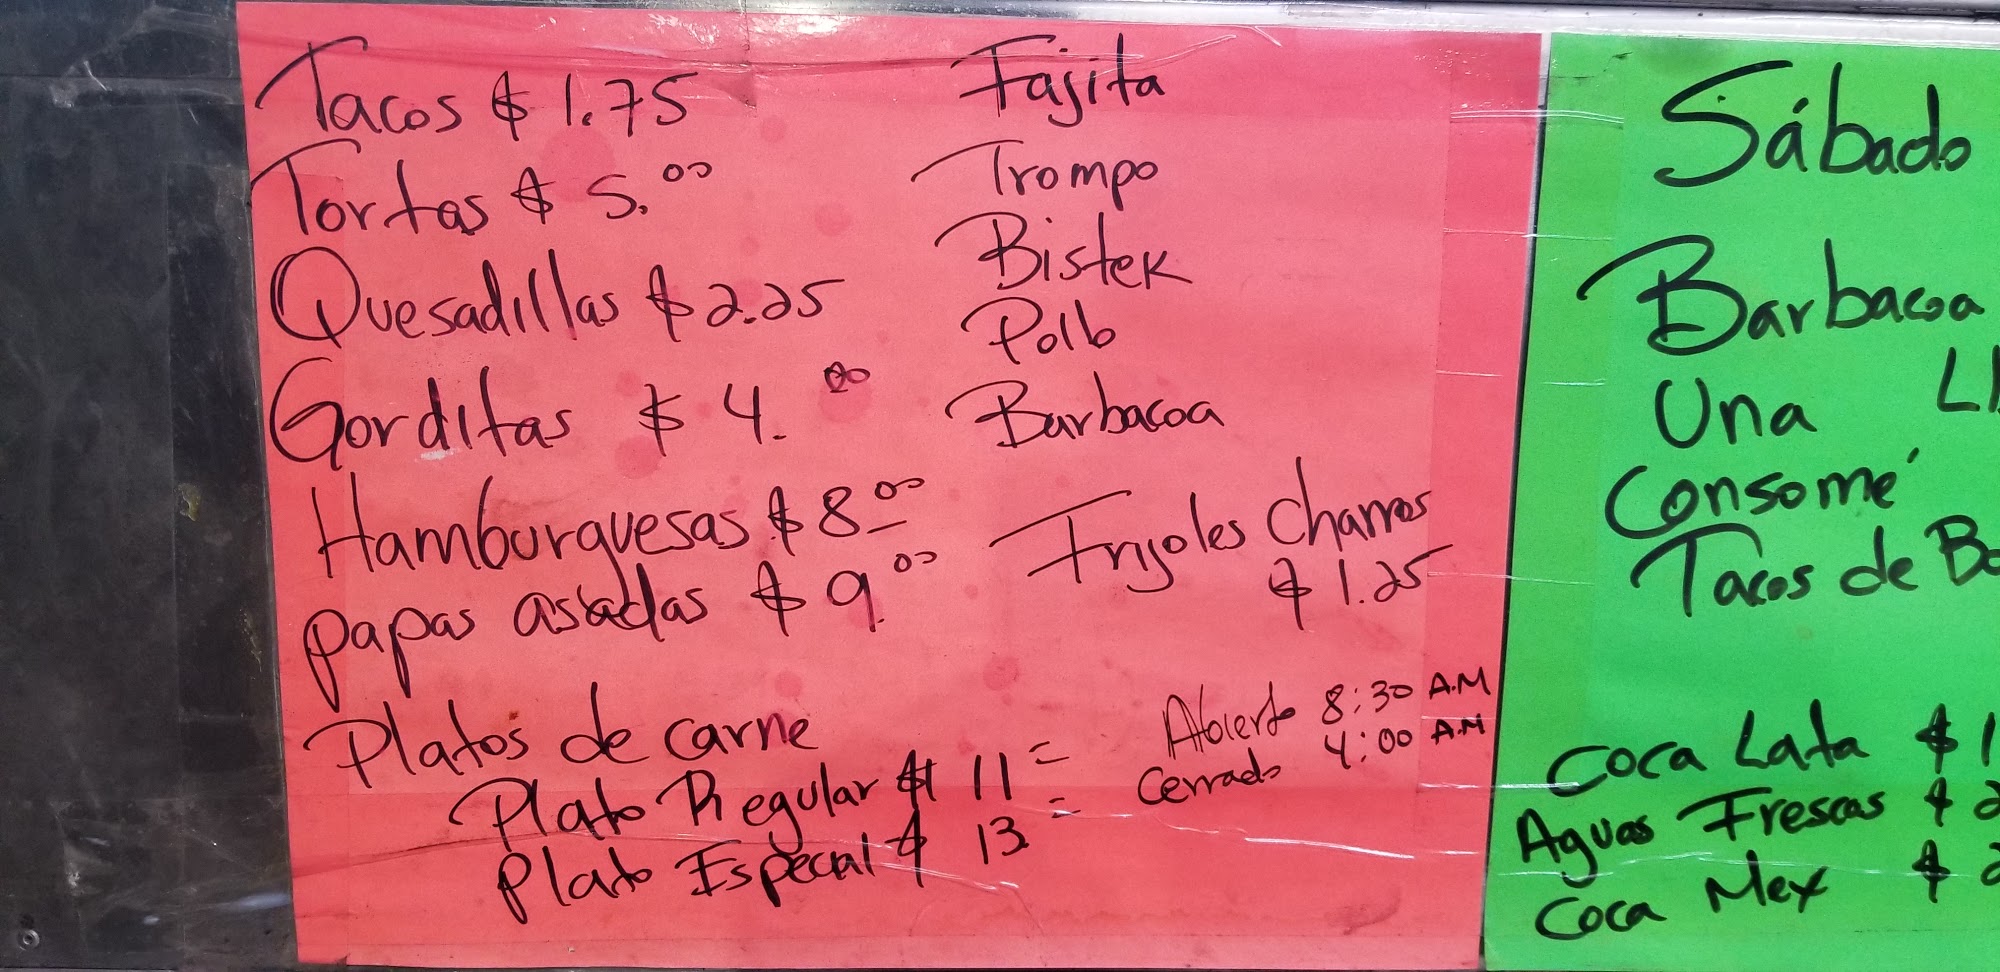 Tacos $ 1.75
Tortas $ 5.00
Quesadillas $ 2.25
Gorditas $ 4.00
Hamburguesas $ 8.00
papas asadas $ 9.00
Platos de carne
Plato Regular $ 11=
Plato Especial $ 13=
Fajita
Trompo
Bistek
Pollo
Barbacoa
Frijoles Charros
$ 1.25
Abierto 8:30 A.M
Cerrado 4:00 A.M
Sábado
Barbacoa
Una
Consomé
Tacos de
Coca Lata $ 1
Aguas Frescas $ 2
Coca Mex $ 2